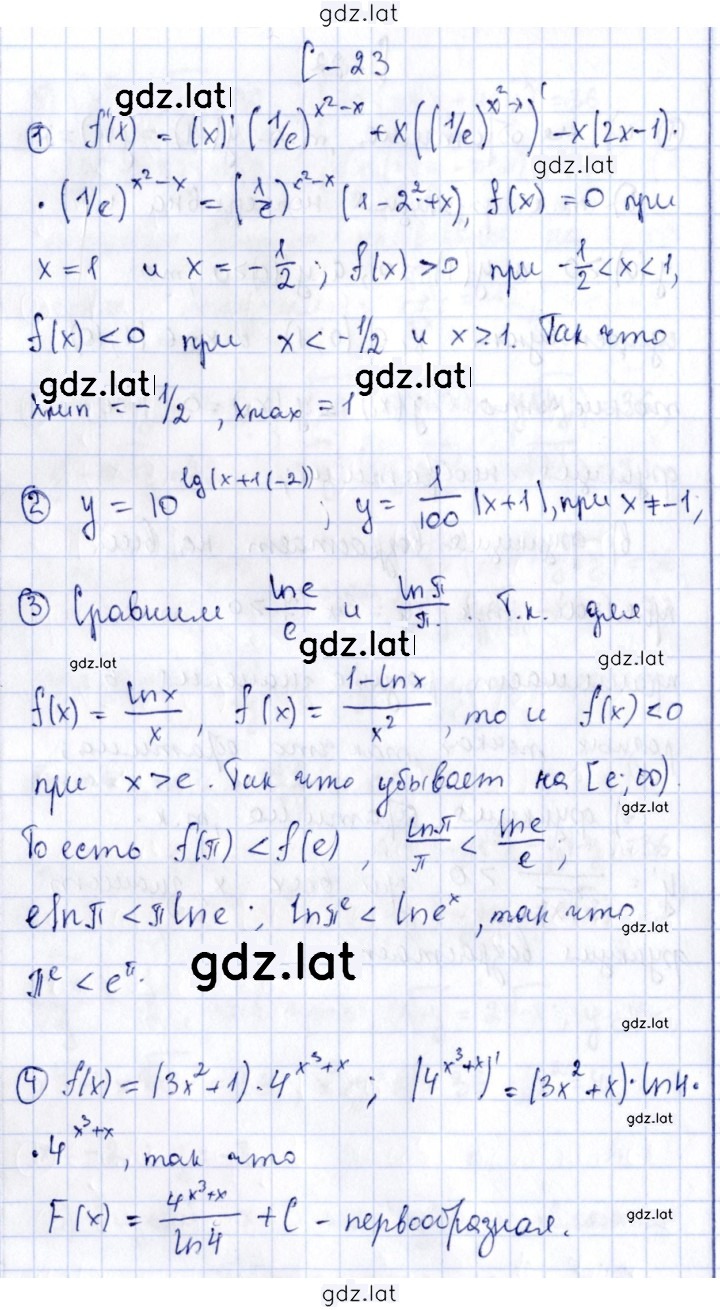 gdz.lat
С-23
gdz.lat
① f'(x) = (x)' (1/e)^{x²-x} + x((1/e)^{x²-x})' - x(2x-1)·
gdz.lat
· (1/e)^{x²-x} = (1/e)^{x²-x} (1-2x²+x), f(x) = 0 при
x = 1 и x = -1/2; f(x) > 0 при -1/2 < x < 1,
f(x) < 0 при x < -1/2 и x > 1. Так что
gdz.lat gdz.lat
xmin = -1/2, xmax = 1
② y = 10^{lg(x+1(-2))}; y = 1/100 |x+1|, при x ≠ -1;
③ Сравним ln e/e и ln π/π. Т.к. для
gdz.lat
gdz.lat gdz.lat
f(x) = ln x/x, f(x) = 1-ln x/x², то и f(x) < 0
при x > e. Так что убывает на [e; ∞).
gdz.lat
То есть f(π) < f(e), ln π/π < ln e/e,
e ln π < π ln e; ln π^e < ln e^x, так что
gdz.lat
π^e < e^π.
gdz.lat
gdz.lat
④ f(x) = (3x²+1)·4^{x³+x}; (4^{x³+x})' = (3x²+x)·ln4·
gdz.lat
·4^{x³+x}, так что
F(x) = 4^{x³+x}/ln4 + C - первообразная.
gdz.lat
gdz.lat